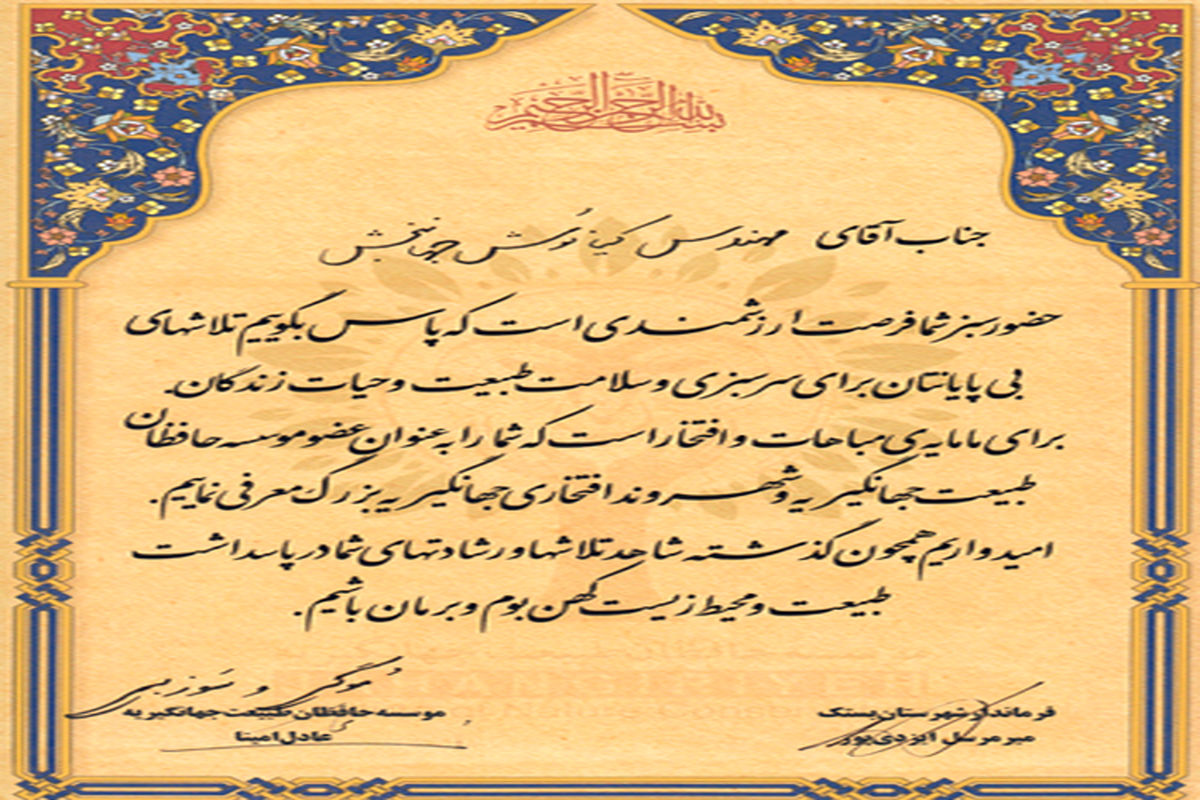 بسم الله الرحمن الرحیم
جناب آقای مهندس کیانوش جهانبخش
حضور سبز شما فرصت ارزشمندی است که پاس بگوییم تلاشهای
بی پایانتان برای سرسبزی و سلامت طبیعت و حیات زندگان.
برای ما مایه ی مباهات و افتخار است که شما را به عنوان عضو موسسه حافظان
طبیعت جهانگیریه و شهروند افتخاری جهانگیریه بزرگ معرفی نماییم.
امیدواریم همچون گذشته شاهد تلاشها و رشادتهای شما در پاسداشت
طبیعت و محیط زیست کهن بوم و برمان باشیم.
فرماندار شهرستان بستک
میر مرسل ایزدی پور
موسسه حافظان طبیعت جهانگیریه
عادل امینا